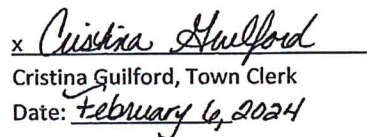 x Cristina Guilford
Cristina Guilford, Town Clerk
Date: February 6, 2024